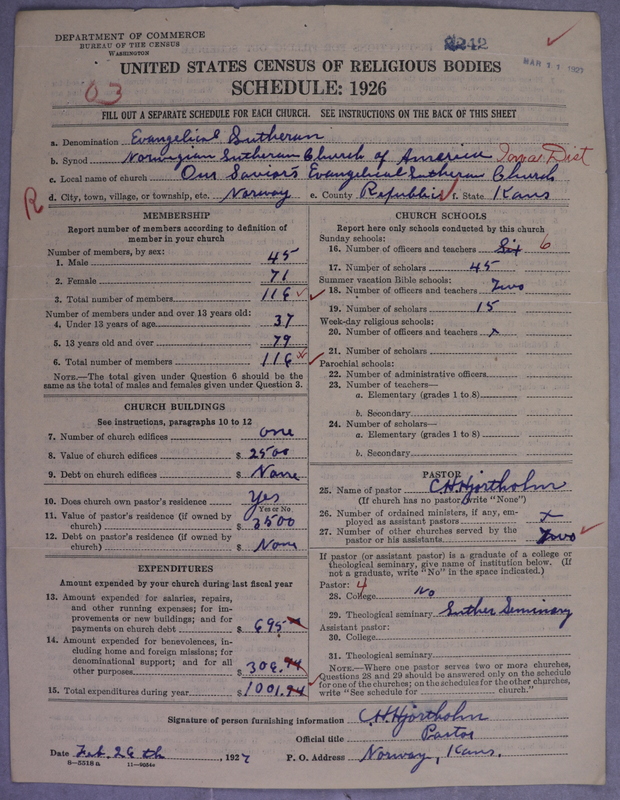 DEPARTMENT OF COMMERCE
BUREAU OF THE CENSUS
WASHINGTON
MAR 11 1927
UNITED STATES CENSUS OF RELIGIOUS BODIES
SCHEDULE: 1926
03
FILL OUT A SEPARATE SCHEDULE FOR EACH CHURCH. SEE INSTRUCTIONS ON THE BACK OF THIS SHEET
a. Denomination Evangelical Lutheran
b. Synod Norwegian Lutheran Church of America Iowa Dist
c. Local name of church Our Savior's Evangelical Lutheran Church
R
d. City, town, village, or township, etc. Norway e. County Republic f. State Kans
MEMBERSHIP
Report number of members according to definition of
member in your church
Number of members, by sex:
1. Male 45
2. Female 71
3. Total number of members 116
Number of members under and over 13 years old:
4. Under 13 years of age 37
5. 13 years old and over 79
6. Total number of members 116
NOTE.—The total given under Question 6 should be the
same as the total of males and females given under Question 3.
CHURCH BUILDINGS
See instructions, paragraphs 10 to 12
7. Number of church edifices one
8. Value of church edifices $ 2500
9. Debt on church edifices $ None
10. Does church own pastor's residence Yes
Yes or No
11. Value of pastor's residence (if owned by
church) $ 3500
12. Debt on pastor's residence (if owned by
church) $ None
EXPENDITURES
Amount expended by your church during last fiscal year
13. Amount expended for salaries, repairs,
and other running expenses; for im-
provements or new buildings; and for
payments on church debt $ 695
14. Amount expended for benevolences, in-
cluding home and foreign missions; for
denominational support; and for all
other purposes $ 306.94
15. Total expenditures during year $ 1001.94
CHURCH SCHOOLS
Report here only schools conducted by this church
Sunday schools:
16. Number of officers and teachers Six 6
17. Number of scholars 45
Summer vacation Bible schools:
18. Number of officers and teachers Two
19. Number of scholars 15
Week-day religious schools:
20. Number of officers and teachers x
21. Number of scholars
Parochial schools:
22. Number of administrative officers
23. Number of teachers—
a. Elementary (grades 1 to 8)
b. Secondary
24. Number of scholars—
a. Elementary (grades 1 to 8)
b. Secondary
PASTOR
25. Name of pastor C.H.Hjortholm
(If church has no pastor write "None")
26. Number of ordained ministers, if any, em-
ployed as assistant pastors x
27. Number of other churches served by the
pastor or his assistants Two
If pastor (or assistant pastor) is a graduate of a college or
theological seminary, give name of institution below. (If
not a graduate, write "No" in the space indicated.)
Pastor: 4
28. College No
29. Theological seminary Luther Seminary
Assistant pastor:
30. College
31. Theological seminary
NOTE.—Where one pastor serves two or more churches,
Questions 28 and 29 should be answered only on the schedule
for one of the churches; on the schedules for the other churches,
write "See schedule for church."
Signature of person furnishing information C.H.Hjortholm
Official title Pastor
Date Feb. 26th, 1927 P. O. Address Norway, Kans.
8—5518a